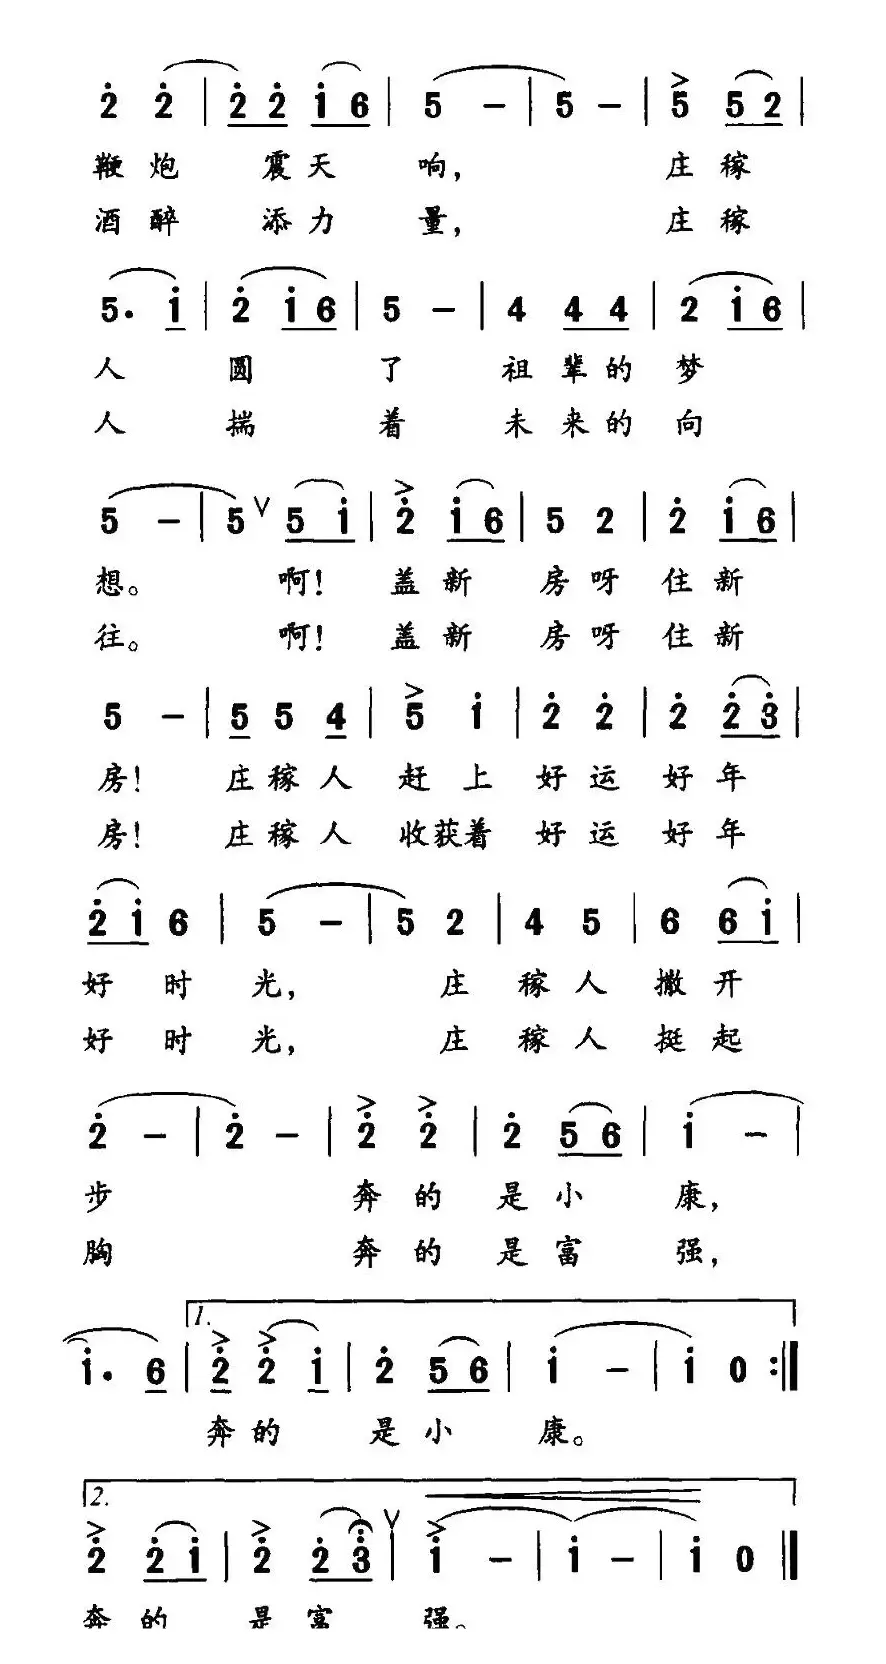 2̇ 2̇ | 2̇ 2̇ 1̇ 6 | 5 − | 5 − | 5 5 2 |
鞭炮 震天 响， 庄稼
酒醉 添力 量， 庄稼
5. 1̇ | 2̇ 1̇ 6 | 5 − | 4 4 4 | 2 1̇ 6 |
人 圆 了 祖辈的梦
人 揣 着 未来的向
5 − | 5 ∨ 5 1̇ | 2̇ 1̇ 6 | 5 2 | 2̇ 1̇ 6 |
想。 啊！ 盖新 房呀 住新
往。 啊！ 盖新 房呀 住新
5 − | 5 5 4 | 5 1̇ | 2̇ 2̇ | 2̇ 2̇ 3̇ |
房！ 庄稼人 赶上 好运 好年
房！ 庄稼人 收获着 好运 好年
2̇ 1̇ 6 | 5 − | 5 2 | 4 5 | 6 6 1̇ |
好时 光， 庄 稼人 撒开
好时 光， 庄 稼人 挺起
2̇ − | 2̇ − | 2̇ 2̇ | 2̇ 5 6 | 1̇ − |
步 奔的 是小 康，
胸 奔的 是富 强，
1.
1̇. 6 | 2̇ 2̇ 1̇ | 2̇ 5 6 | 1̇ − | 1̇ 0 :‖
奔的 是小 康。
2.
2̇ 2̇ 1̇ | 2̇ 2̇ 3̇ ∨ | 1̇ − | 1̇ − | 1̇ 0 ‖
奔的 是富 强。